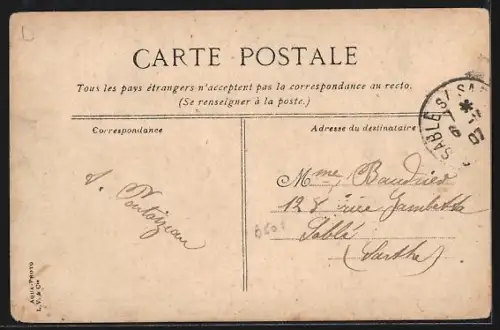 CARTE POSTALE
Tous les pays étrangers n'acceptent pas la correspondance au recto.
(Se renseigner à la poste.)
Correspondance
Adresse du destinataire
SABLÉ S/ SAR
07
Mme Baudrier
128 rue Gambetta
Sablé
(Sarthe)
L. V. & Cie